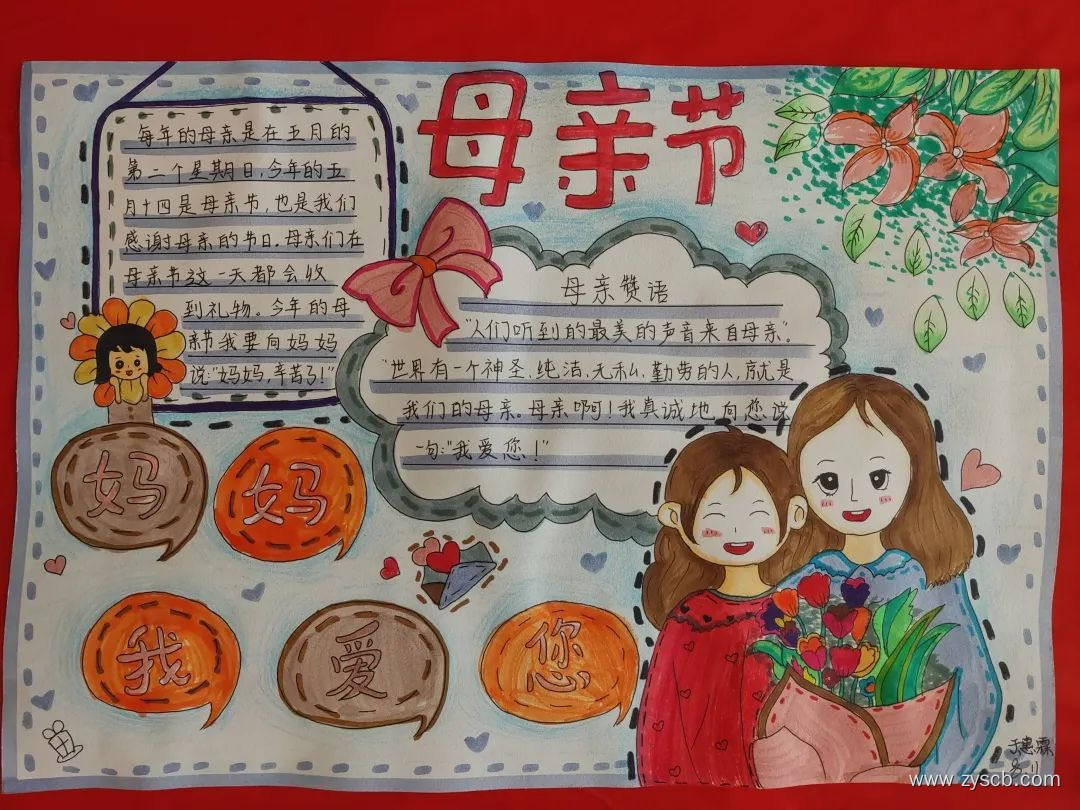 母亲节
每年的母亲是在五月的
第二个星期日,今年的五
月十四是母亲节,也是我们
感谢母亲的节日。母亲们在
母亲节这一天都会收
到礼物。今年的母
亲节我要向妈妈
说:“妈妈,辛苦了!”
母亲赞语
“人们听到的最美的声音来自母亲”。
“世界有一个神圣、纯洁、无私、勤劳的人,就是
我们的母亲。母亲啊!我真诚地向您说
一句:“我爱您!”
妈妈
我爱您
www.zyscb.com